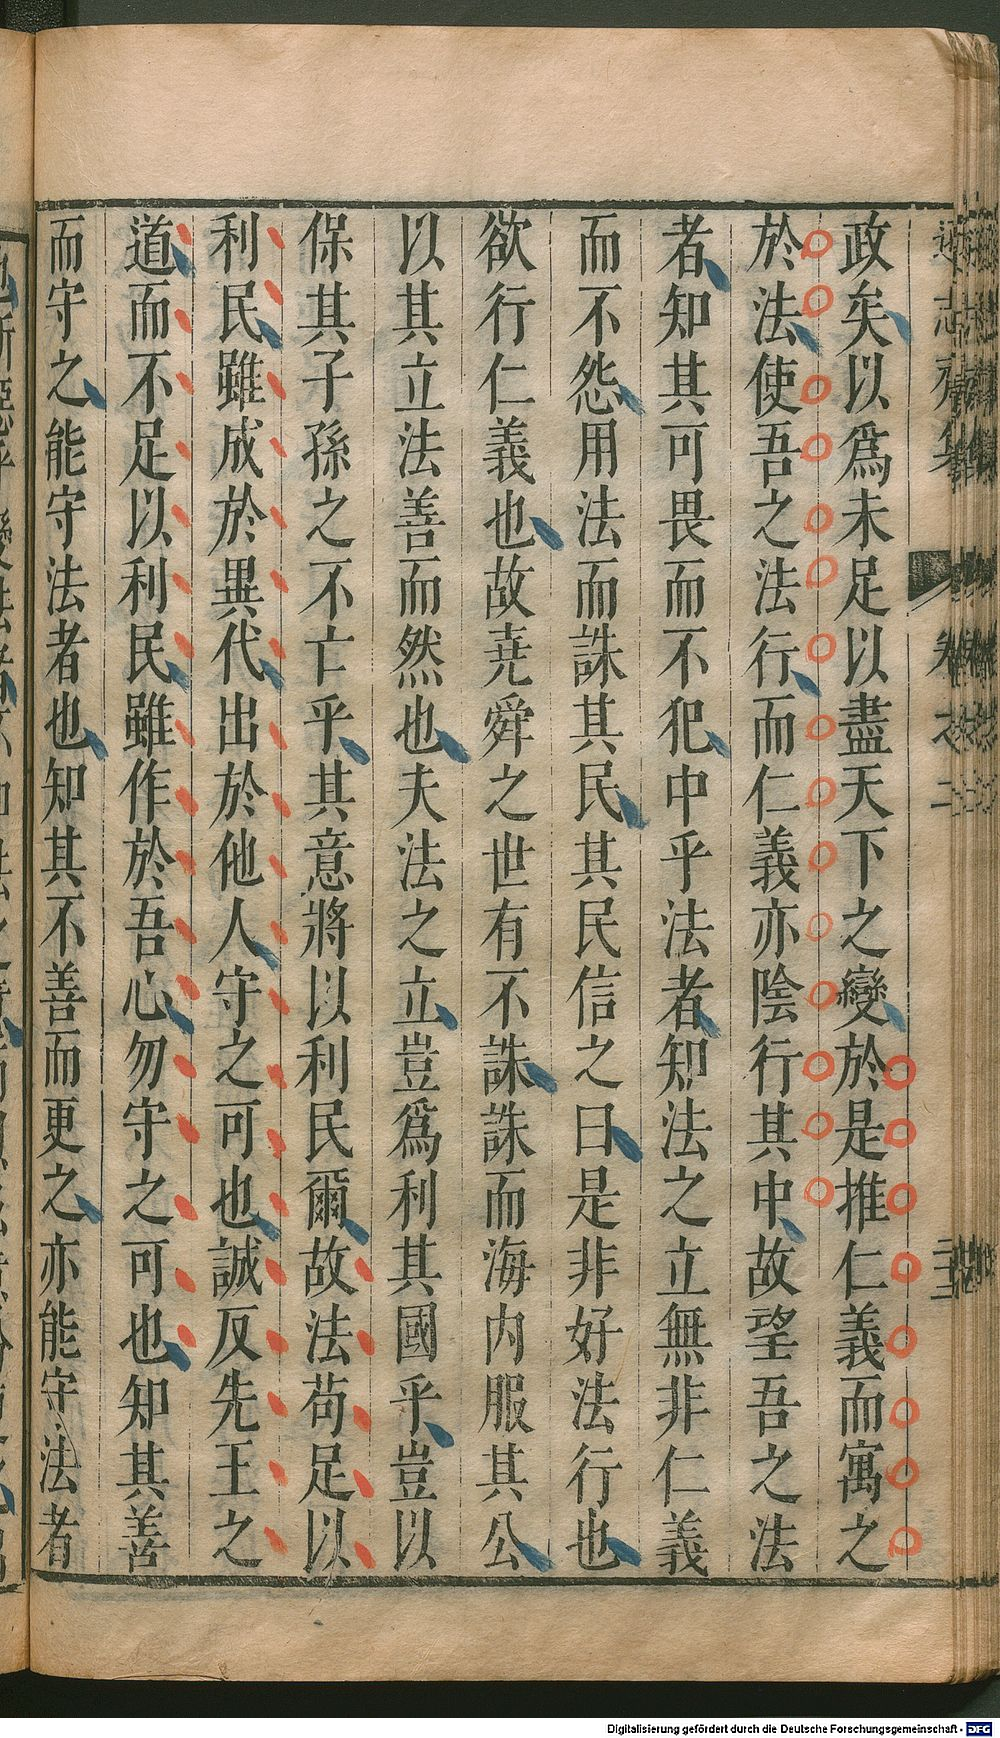 政矣以爲未足以盡天下之變於是推仁義而寓之
於法使吾之法行而仁義亦陰行其中故望吾之法
者知其可畏而不犯中乎法者知法之立無非仁義
而不怨用法而誅其民其民信之曰是非好法行也
欲行仁義也故堯舜之世有不誅誅而海内服其公
以其立法善而然也夫法之立豈爲利其國乎豈以
保其子孫之不亡乎其意將以利民爾故法苟足以
利民雖成於異代出於他人守之可也誠反先王之
道而不足以利民雖作於吾心勿守之可也知其善
而守之能守法者也知其不善而更之亦能守法者
Digitalisierung gefördert durch die Deutsche Forschungsgemeinschaft - DFG